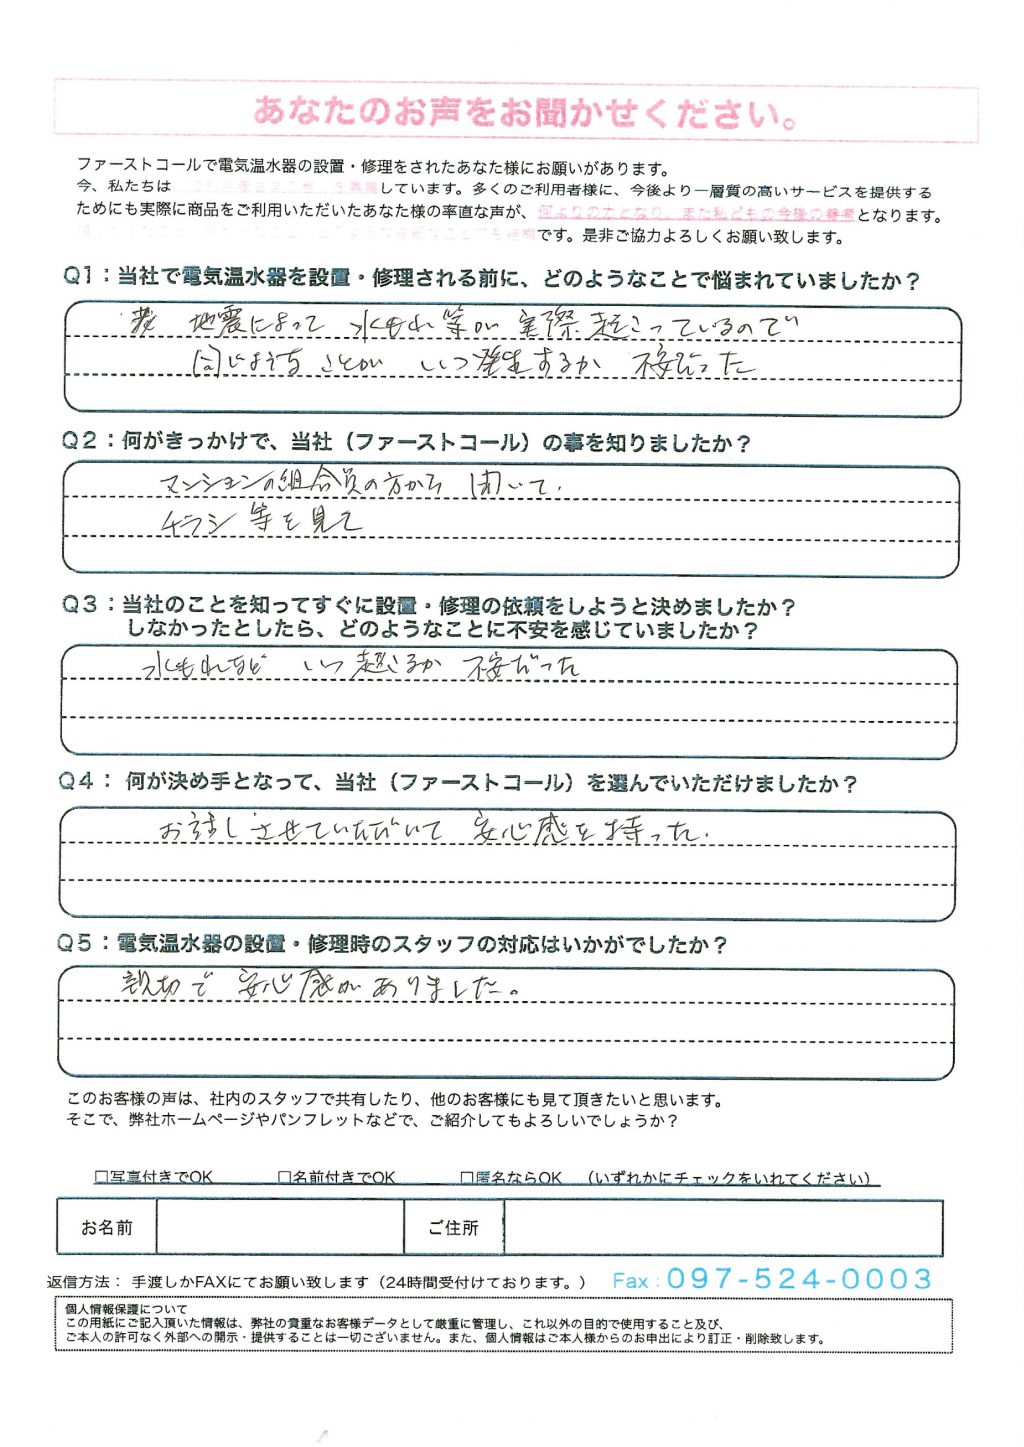 あなたのお声をお聞かせください。
ファーストコールで電気温水器の設置・修理をされたあなた様にお願いがあります。
今、私たちは しています。多くのご利用者様に、今後より一層質の高いサービスを提供する
ためにも実際に商品をご利用いただいたあなた様の率直な声が、何よりの力となり、また私どもの今後の養分となります。
です。是非ご協力よろしくお願い致します。
Q1：当社で電気温水器を設置・修理される前に、どのようなことで悩まれていましたか？
地震によって 水もれ等が 実際起こっているので
同じようなことが いつ発生するか 不安だった
Q2：何がきっかけで、当社（ファーストコール）の事を知りましたか？
マンションの組合員の方から 聞いて.
チラシ 等を見て
Q3：当社のことを知ってすぐに設置・修理の依頼をしようと決めましたか？
しなかったとしたら、どのようなことに不安を感じていましたか？
水もれなど いつ起こるか 不安だった
Q4： 何が決め手となって、当社（ファーストコール）を選んでいただけましたか？
お話しさせていただいて 安心感を持った.
Q5：電気温水器の設置・修理時のスタッフの対応はいかがでしたか？
親切で 安心感がありました。
このお客様の声は、社内のスタッフで共有したり、他のお客様にも見て頂きたいと思います。
そこで、弊社ホームページやパンフレットなどで、ご紹介してもよろしいでしょうか？
□写真付きでOK □名前付きでOK □匿名ならOK （いずれかにチェックをいれてください）
お名前 ご住所
返信方法： 手渡しかFAXにてお願い致します（24時間受付けております。） Fax：097-524-0003
個人情報保護について
この用紙にご記入頂いた情報は、弊社の貴重なお客様データとして厳重に管理し、これ以外の目的で使用すること及び、
ご本人の許可なく外部への開示・提供することは一切ございません。また、個人情報はご本人様からのお申出により訂正・削除致します。